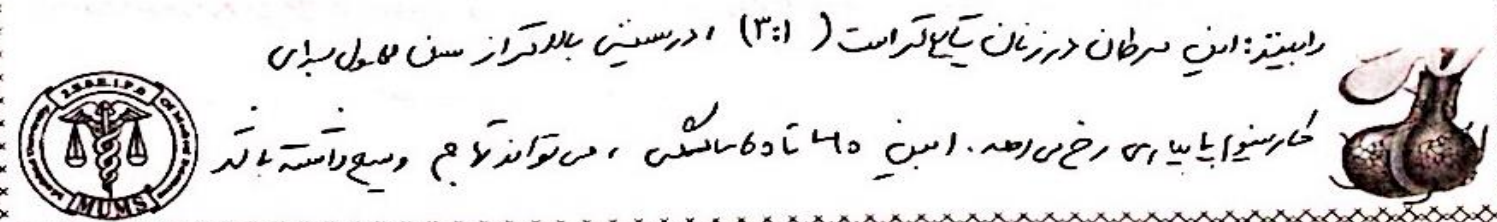 رابینز: این سرطان در زنان شایع تر است (۳:۱) ، در سنینی بالاتر از سن معمول برای
کارسینوم پاپیلاری رخ می دهد. (بین ۴۰ تا ۵۰ سالگی ، می تواند تهاجم وسیع داشته باشد
Of Medical Sciences
MUMS